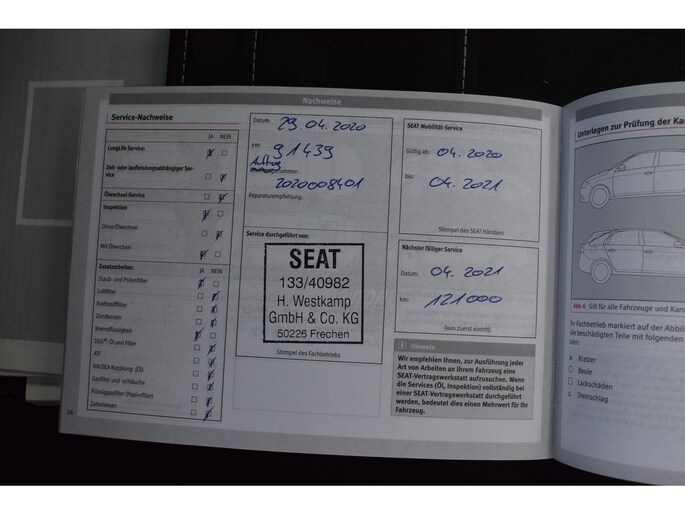 Nachweise
Service-Nachweise
JA NEIN
LongLife-Service:
Zeit- oder laufleistungsabhängiger Ser-
vice
Ölwechsel-Service
Inspektion
Ohne Ölwechsel
Mit Ölwechsel
Zusatzarbeiten:
JA NEIN
Staub- und Pollenfilter
Luftfilter
Kraftstofffilter
Zündkerzen
Bremsflüssigkeit
DSG®: Öl und Filter
ATF
HALDEX-Kupplung (Öl)
Gasfilter und -schläuche
Flüssiggasfilter (Papierfilter)
Zahnriemen
26
Datum: 29.04.2020
km: 91439
Auftrag
2020008401
Reparaturempfehlung:
Service durchgeführt von:
SEAT
133/40982
H. Westkamp
GmbH & Co. KG
50226 Frechen
Stempel des Fachbetriebs
SEAT Mobilität-Service
Gültig ab: 04.2020
bis: 04.2021
Stempel des SEAT Händlers
Nächster fälliger Service
Datum: 04.2021
km: 121000
(was zuerst eintritt)
i Hinweis
Wir empfehlen Ihnen, zur Ausführung jeder
Art von Arbeiten an Ihrem Fahrzeug eine
SEAT-Vertragswerkstatt aufzusuchen. Wenn
die Services (Öl, Inspektion) vollständig bei
einer SEAT-Vertragswerkstatt durchgeführt
werden, bedeutet dies einen Mehrwert für Ihr
Fahrzeug.
Unterlagen zur Prüfung der Ka
Abb. 6 Gilt für alle Fahrzeuge und Ka
Ihr Fachbetrieb markiert auf der Abbil
die beschädigten Teile mit folgenden
Kratzer
Beule
Lackschäden
Steinschlag